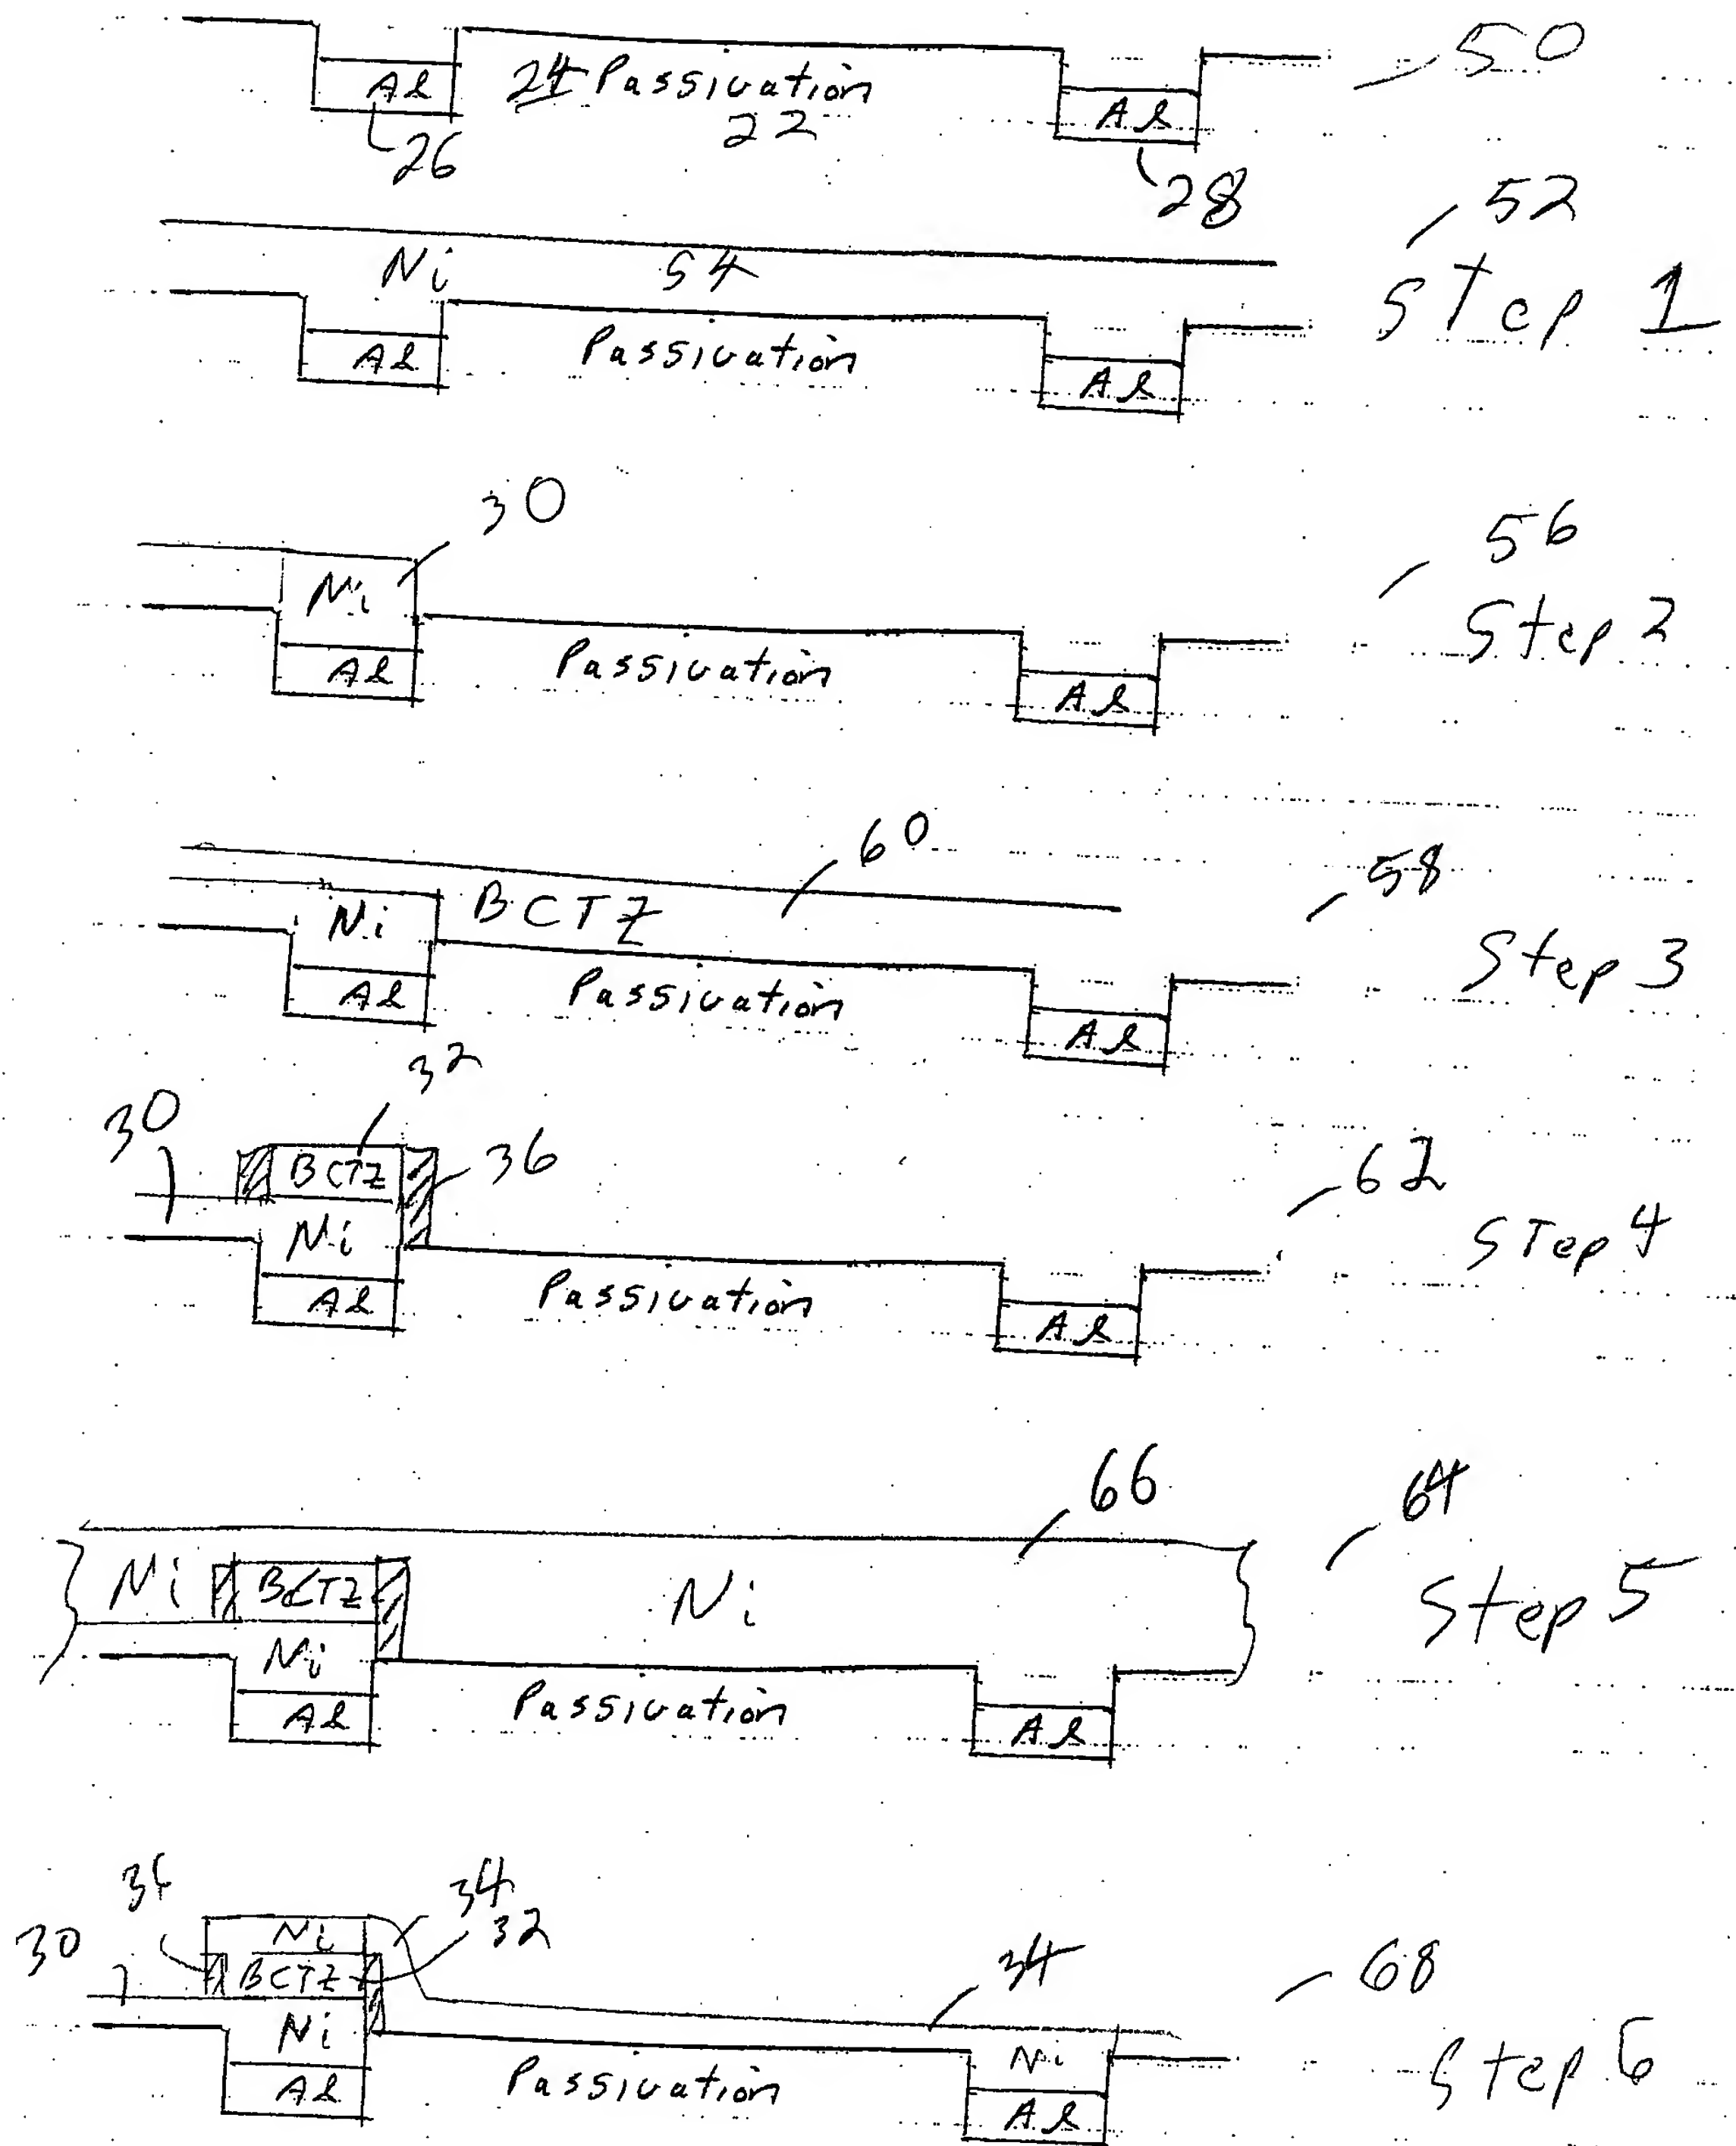 50
Al 24 Passivation Al
22
26 28
52
Ni 54 Step 1
Al Passivation Al
30
56
Ni Step 2
Al Passivation Al
60
58
Ni BCTZ Step 3
Al Passivation Al
32
30 BCTZ 36 62
Ni Step 4
Al Passivation Al
66 64
Ni BCTZ Ni Step 5
Ni
Al Passivation Al
34 32
30 Ni 34 68
BCTZ
Ni Ni Step 6
Al Passivation Al